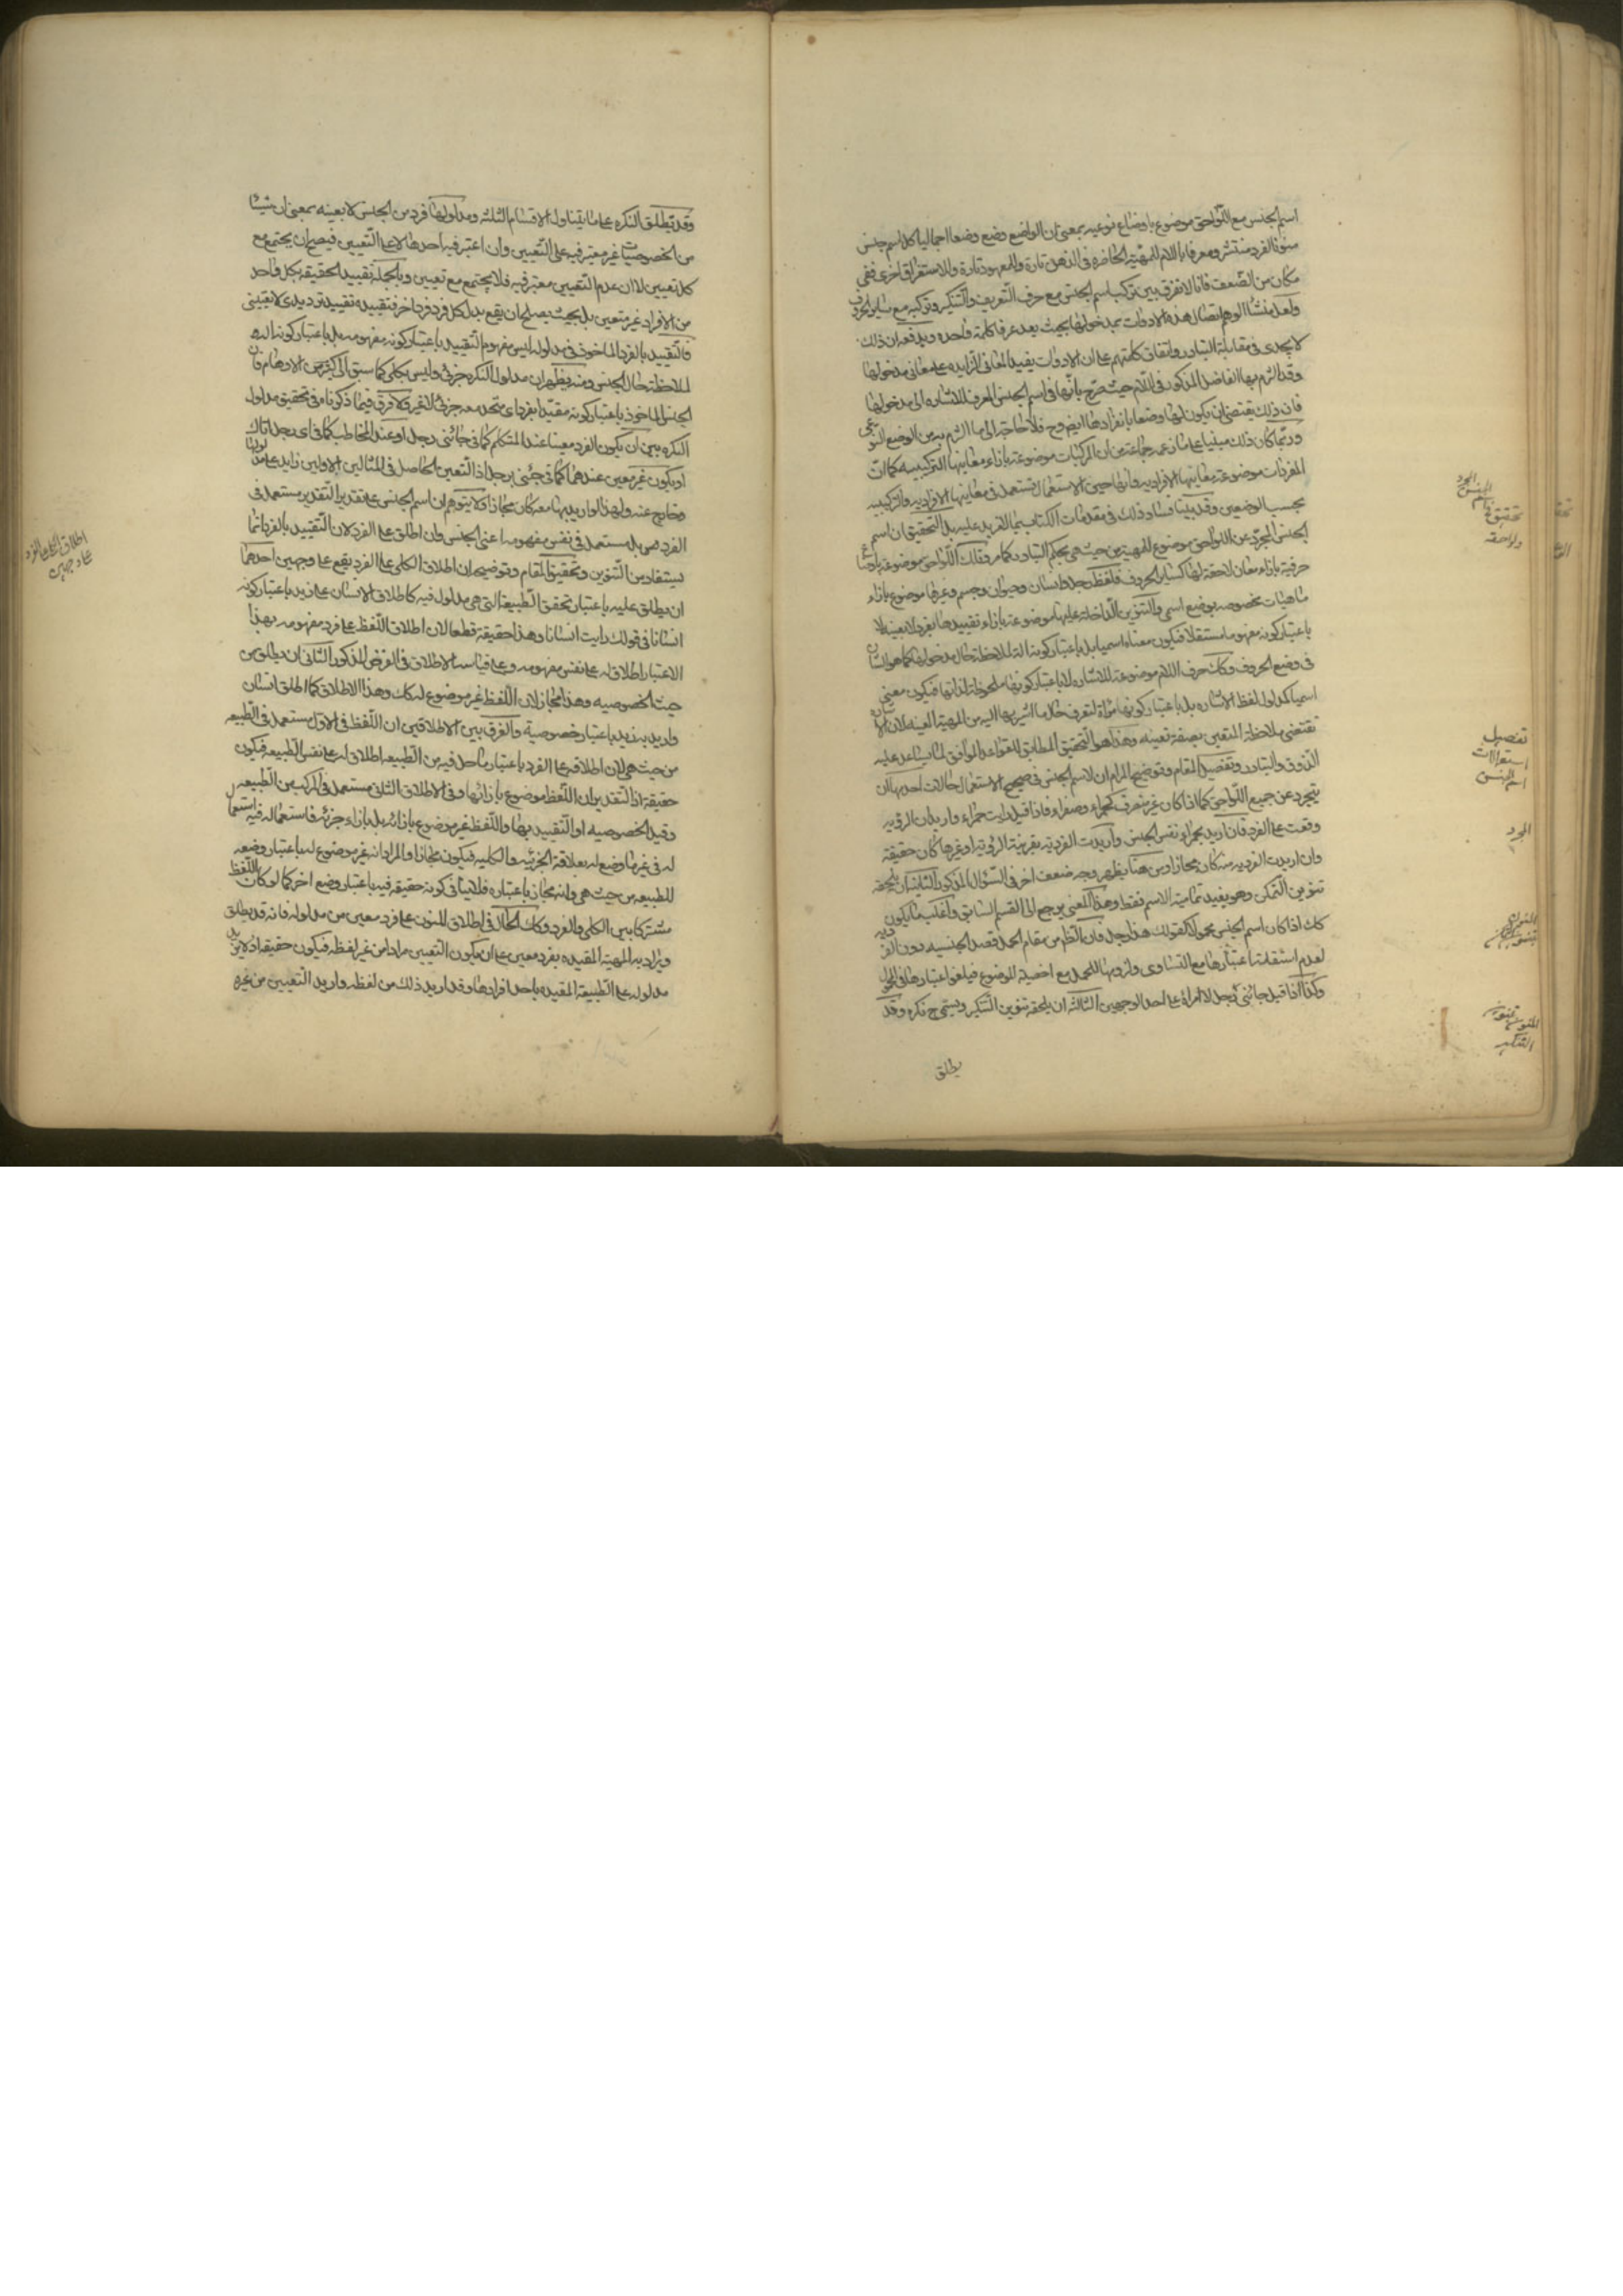 اسم الجنس مع اللواحق موضوع باوضاع نوعيه بمعنى ان الواضع وضع وضعا اجماليا كل اسم جنس
منونا لفرد منتشر ومعرفا باللام للمهية الحاضره فى الذهن تارة وللمعهود تارة وللاستغراق اخرى ففى
مكان من الضعف فانا لا نفرق بين تركب اسم الجنس مع حرف التعريف والتنكير وتركبه مع سائر الحروف
ولعل منشأ الوهم اتصال هذه الادوات بمدخولها بحيث يعد عرفا كلمة واحده ويدفعه ان ذلك
لا يجدى فى مقابلة التبادر واتفاق كلمتهم على ان الادوات يفيد المعانى الزايده على معانى مدخولها
وقد التزم بها الفاضل المذكور فى اللام حيث صرح بانها فى اسم الجنس المعرف للاشاره الى مدخولها
فان ذلك يقتضى ان يكون لها وضعا بانفرادها فلا حاجة الى ما التزم به من الوضع النوعى
وربما كان ذلك مبنيا على ما زعمه جماعة من ان المركبات موضوعة بازاء معانيها التركيبيه كما ان
المفردات موضوعة بمعانيها الافراديه وانها حين الاستعمال تستعمل فى معانيها الافراديه والتركيبيه
بحسب الوضعين وقد بينا فساد ذلك فى مقدمات الكتاب بما لا مزيد عليه بل التحقيق ان اسم
الجنس المجرد عن اللواحق موضوع للمهية من حيث هى بحكم التبادر كما مر وتلك اللواحق موضوعة باوضاع
حرفية بازاء معان لاحقة لها كسائر الحروف فلفظ رجل وانسان وحيوان وجسم وغيرها موضوع بازاء
ماهيات مخصوصه بوضع اسمى والتنوين الداخلة عليها موضوعة بازاء تقييدها بفرد لا بعينه لا
باعتبار كونه مفهوما مستقلا فيكون معناه اسميا بل باعتبار كونه الة لملاحظة حال مدخولها كما هو الشان
فى وضع الحروف وكذلك حرف اللام موضوعة للاشاره لا باعتبار كونها ملحوظة لذاتها فيكون معنى
اسميا كمدلول لفظ الاشاره بل باعتبار كونها مرآة لتعرف حال ما اشير بها اليه من المهية المعينه لان الاشاره
تقتضى ملاحظة المتعين بصفة تعينه وهذا هو التحقيق المطابق للقواعد الموافق لما يساعد عليه
الذوق والتبادر وتفصيل المقام وتوضيح المرام ان لاسم الجنس فى صحيح الاستعمال حالات احدها ان
يتجرد عن جميع اللواحق كما اذا كان غير منصرف كحمراء وصفراء فاذا قيل رايت حمراء واريد ان الرؤيه
وقعت على الفرد فان اريد بحمراء نفس الجنس واريدت الفرديه بقرينة الرؤيه او غيرها كان حقيقة
وان اريدت الفرديه منه كان مجازا ومن هنا يظهر وجه ضعف اخر فى السؤال المذكور الثانية ان يلحقه
تنوين التمكن وهو يفيد تمامية الاسم فقط وهذا المعنى يرجع الى القسم السابق واغلب ما يكون
كك اذا كان اسم الجنس محمولا كقولك هذا رجل فان الظاهر من مقام الحمل قصد الجنسيه دون الفرديه
لعدم استقامة اعتبارها مع التساوى ولزومها للحمل مع اخصية الموضوع فيلغو اعتبارها فى المحمول
وكذا اذا قيل جائنى رجل لا امرأة على احد الوجهين الثالثة ان يلحقه تنوين التنكير ويسمى ح نكره وقد
يطلق
تحقيق فى اسم الجنس المجرد ولواحقه
تفصيل
استعمالات
اسم الجنس
المجرد
المنون بتنوين التمكن
المنون بتنوين
التنكير
وقد يطلق النكره على ما يتناول الاقسام الثلثه ومدلولها فرد من الجنس لا بعينه بمعنى ان شيئا
من الخصوصيات غير معتبر فيه على التعيين وان اعتبر فيه احدها لا على التعيين فيصح ان يجتمع مع
كل تعيين لا ان عدم التعيين معتبر فيه فلا يجتمع مع تعيين وبالجملة تقييد الحقيقة بكل واحد
من الافراد غير متعين بل بحيث يصلح ان يقع بدل كل فرد فرد اخر فتقييده تقييد ترديدى لا تعيينى
فالتقييد بالفرد الماخوذ فى مدلوله ليس مفهوم التقييد باعتبار كونه مفهومه بل باعتبار كونه الة
لملاحظة حال الجنس ومنه يظهر ان مدلول النكره جزئى وليس بكلى كما سبق الى كثير من الاوهام فان
الجنس الماخوذ باعتبار كونه مقيدا بفرد اى متحد معه جزئى لا غير ولا فرق فيما ذكرناه فى تحقيق مدلول
النكره بين ان يكون الفرد معينا عند المتكلم كما فى جائنى رجل او عند المخاطب كما فى اى رجل اتاك
او يكون غير معين عندهما كما فى جئنى برجل اذ التعين الحاصل فى المثالين الاولين زايد على مدلولها
وخارج عنه ولهذا لو اريد بها معه كان مجازا ولا يتوهم ان اسم الجنس على تقدير التقدير مستعمل فى
الفرد بل مستعمل فى نفس مفهومه اعنى الجنس وان اطلق على الفرد لان التقييد بالفرد انما
يستفاد من التنوين وتحقيق المقام وتوضيحه ان اطلاق الكلى على الفرد يقع على وجهين احدهما
ان يطلق عليه باعتبار تحقق الطبيعة التى هى مدلوله فيه كاطلاق الانسان على زيد باعتبار كونه
انسانا فى قولك رايت انسانا وهذا حقيقة قطعا لان اطلاق اللفظ على فرد مفهومه بهذا
الاعتبار اطلاق له على نفس مفهومه وعلى قياسه الاطلاق فى الفرض المذكور الثانى ان يطلق من
حيث الخصوصيه وهذا مجاز لان اللفظ غير موضوع له كك وهذا الاطلاق كما اطلق انسان
واريد به زيد باعتبار خصوصيته والفرق بين الاطلاقين ان اللفظ فى الاول مستعمل فى الطبيعه
من حيث هى لان اطلاقه على الفرد باعتبار ما حل فيه من الطبيعه اطلاق له على نفس الطبيعه فيكون
حقيقة اذ التقدير ان اللفظ موضوع بازائها وفى الاطلاق الثانى مستعمل فى المركب من الطبيعه
وقيد الخصوصيه او التقييد بها واللفظ غير موضوع بازائه بل بازاء جزئه فاستعماله فيه استعمال
له فى غير ما وضع له بعلاقة الجزئيه والكليه فيكون مجازا والمراد انه غير موضوع له باعتبار وضعه
للطبيعه من حيث هى وانه مجاز باعتباره فلا ينافى كونه حقيقه فيه باعتبار وضع اخر كما لو كان اللفظ
مشتركا بين الكلى والفرد وكك الحال فى اطلاق المنون على فرد معين من مدلوله فانه قد يطلق
ويراد به المهية المقيده بفرد معين على ان يكون التعيين مرادا من غير لفظه فيكون حقيقة اذ لا يزيد
مدلوله على الطبيعة المقيده باحد افرادها وقد اريد ذلك من لفظه واريد التعيين من غيره
اطلاق الكلى على الفرد
على وجهين